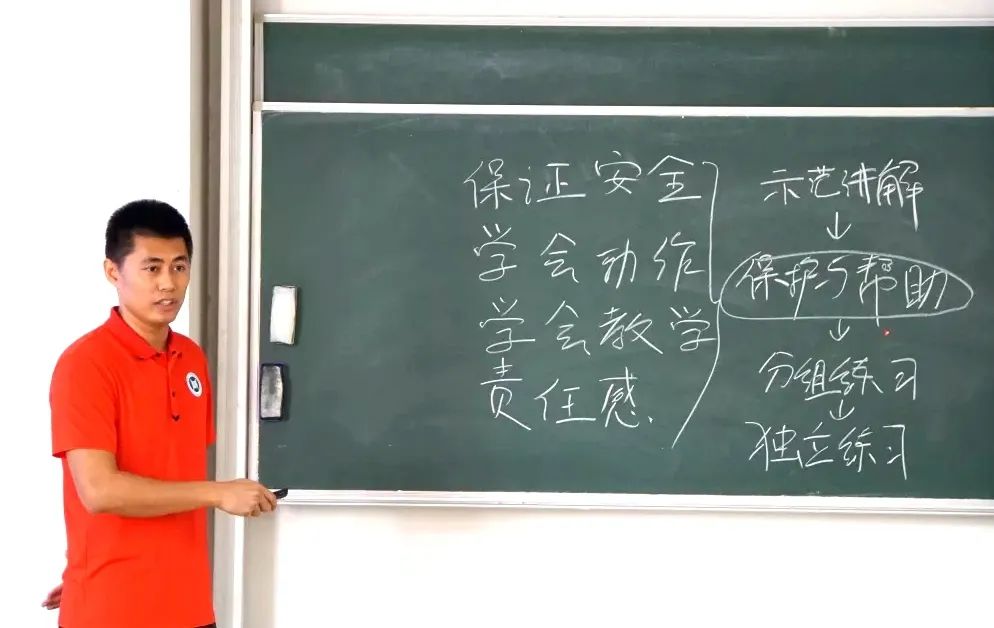 保证安全
学会动作
学会教学
责任感.
示范讲解
↓
保护与帮助
↓
分组练习
↓
独立练习